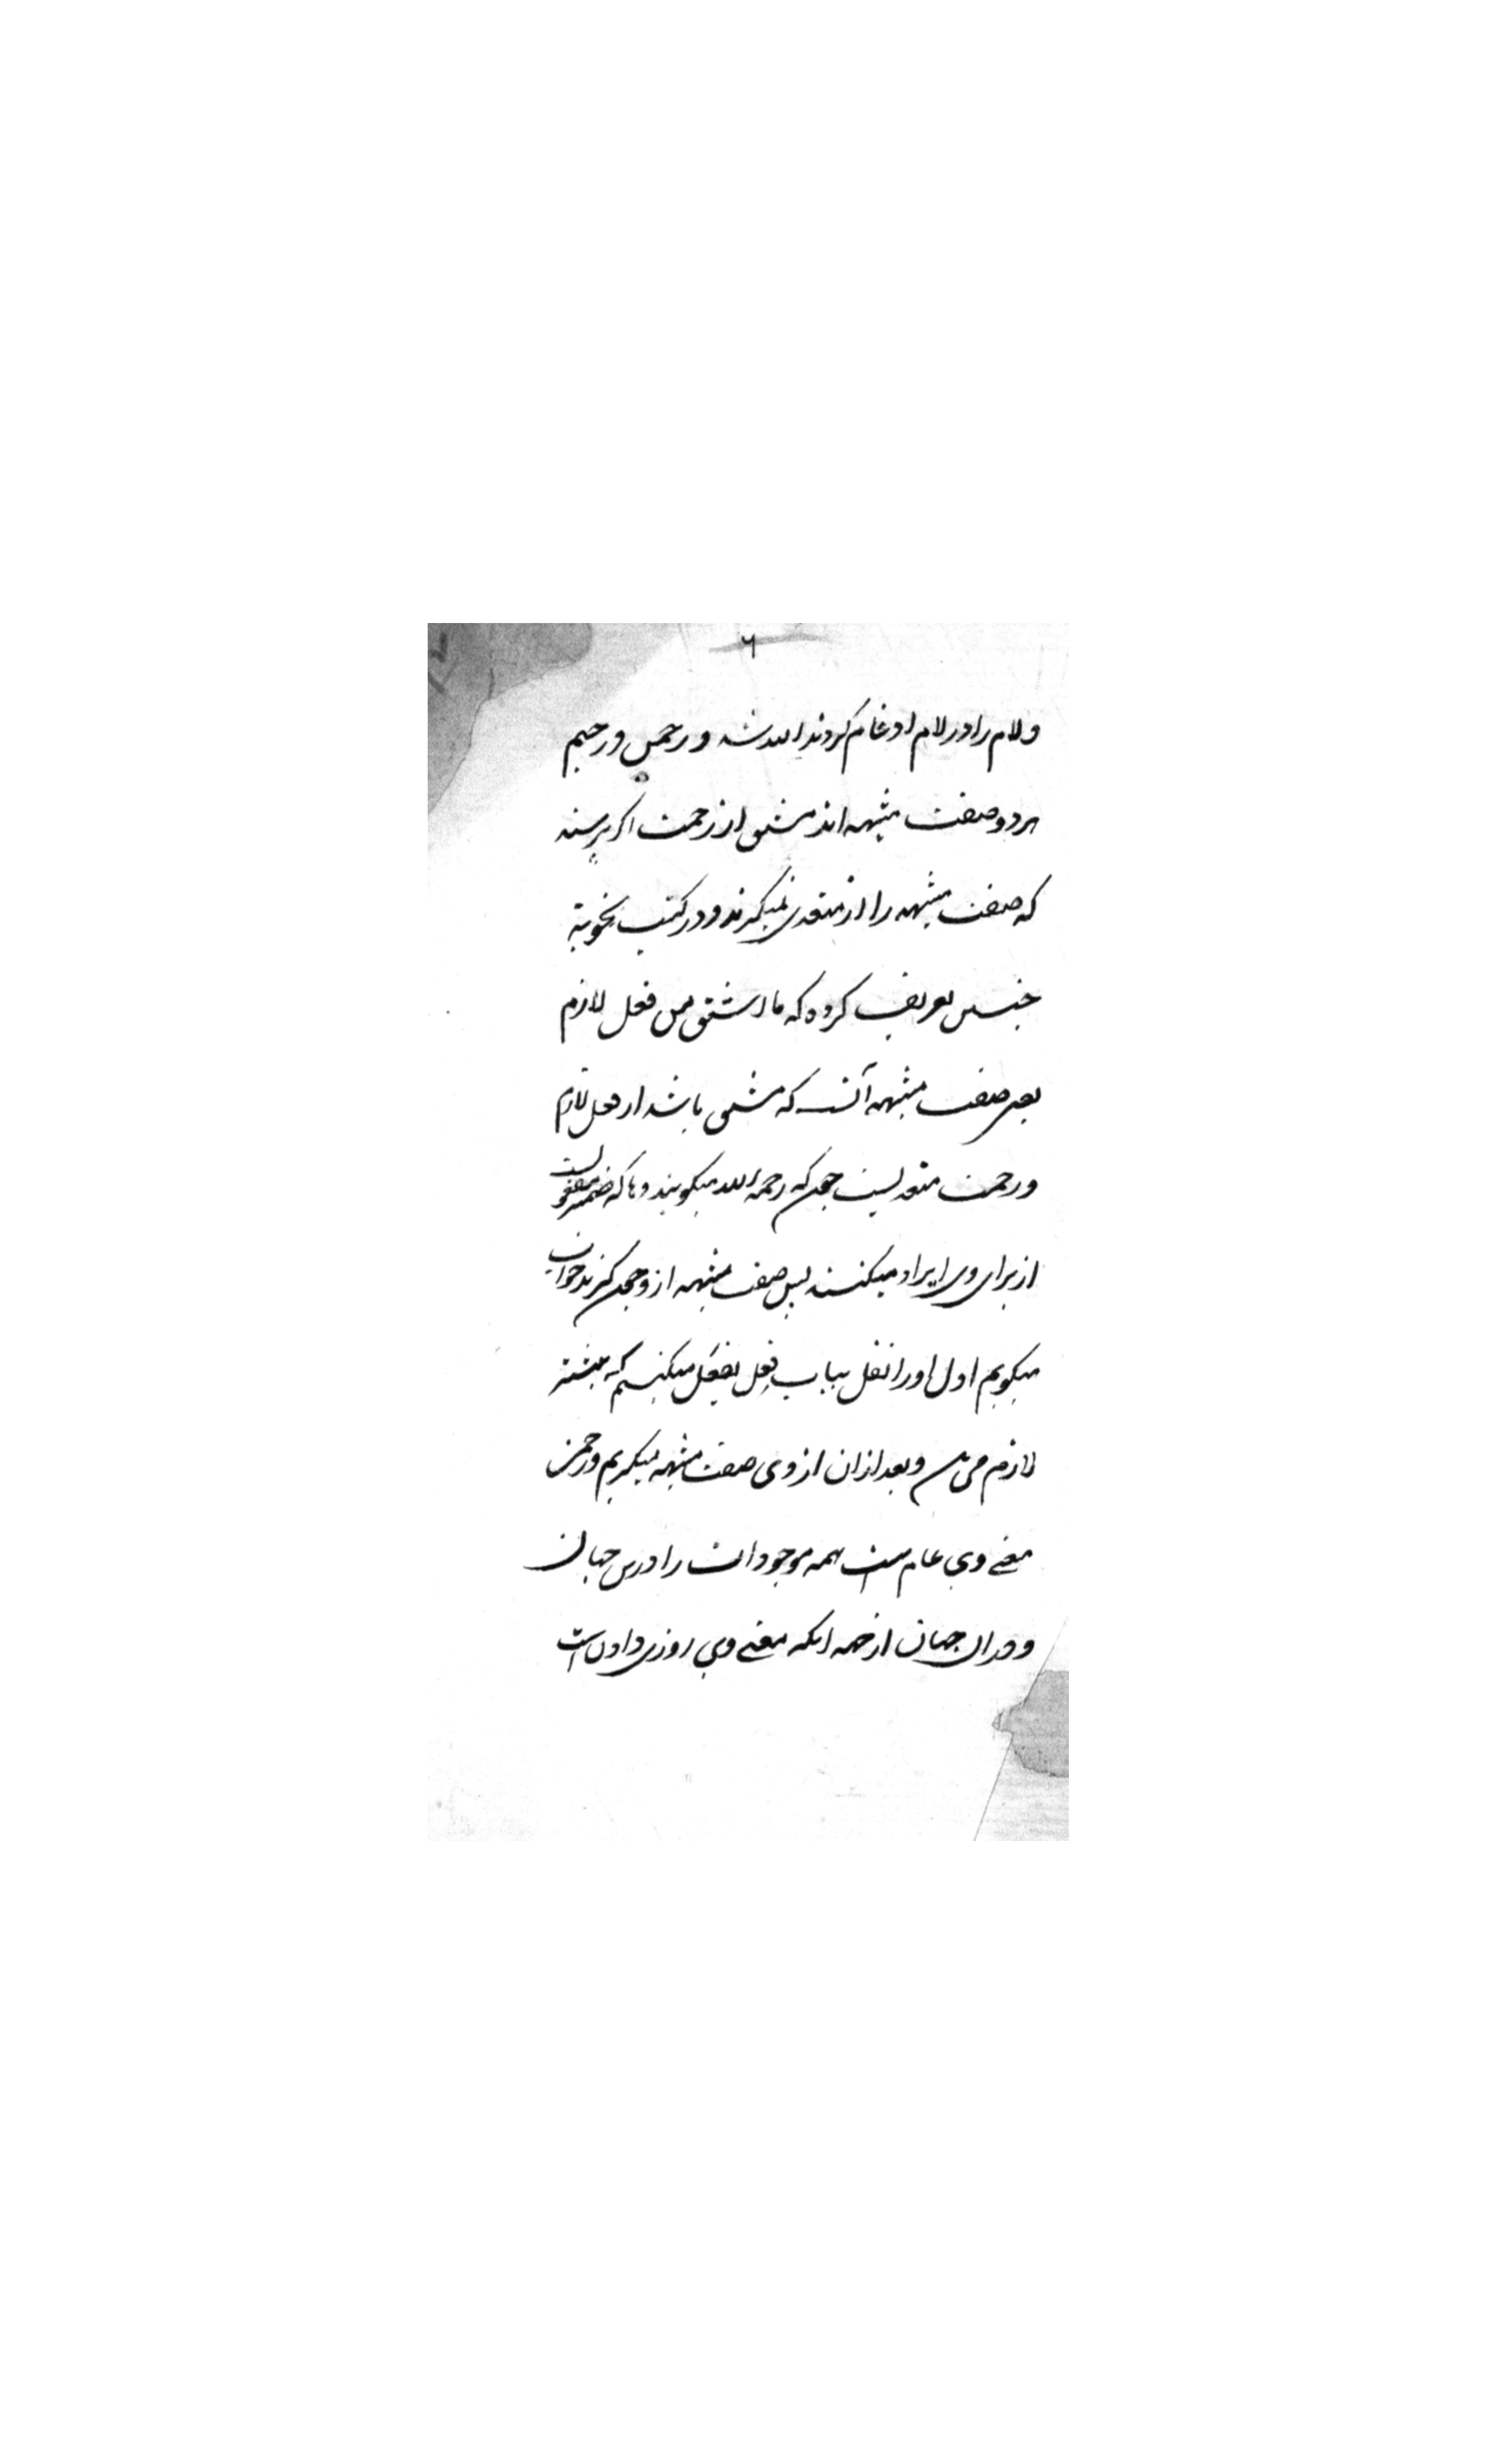 ٦
ولام را در لام ادغام کردند الله شد و رحمن و رحیم
هر دو صفت مشبهه اند مشتق از رحمت اگر پرسند
که صفت مشبهه را از متعدی نمیگیرند و در کتب نحویة
چنین تعریف کرده که ما اشتق من فعل لازم
یعنی صفت مشبهه آنست که مشتق باشد از فعل لازم
و رحمت متعدیست چون که رحمه الله میگویند و ها که ضمیر مفعولست
از برای وی ایراد میکنند پس صفت مشبهه ازو چون گیرند جواب
میگویم اول اورا نقل بباب فعل یفعل میکنیم که بیشتر
لازم می و بعد ازان از وی صفت مشبهه میگیریم و رحمن
معنی وی عام است همه موجودات را درین جهان
و دران جهان از جهه انکه معنی وی روزی دادن است